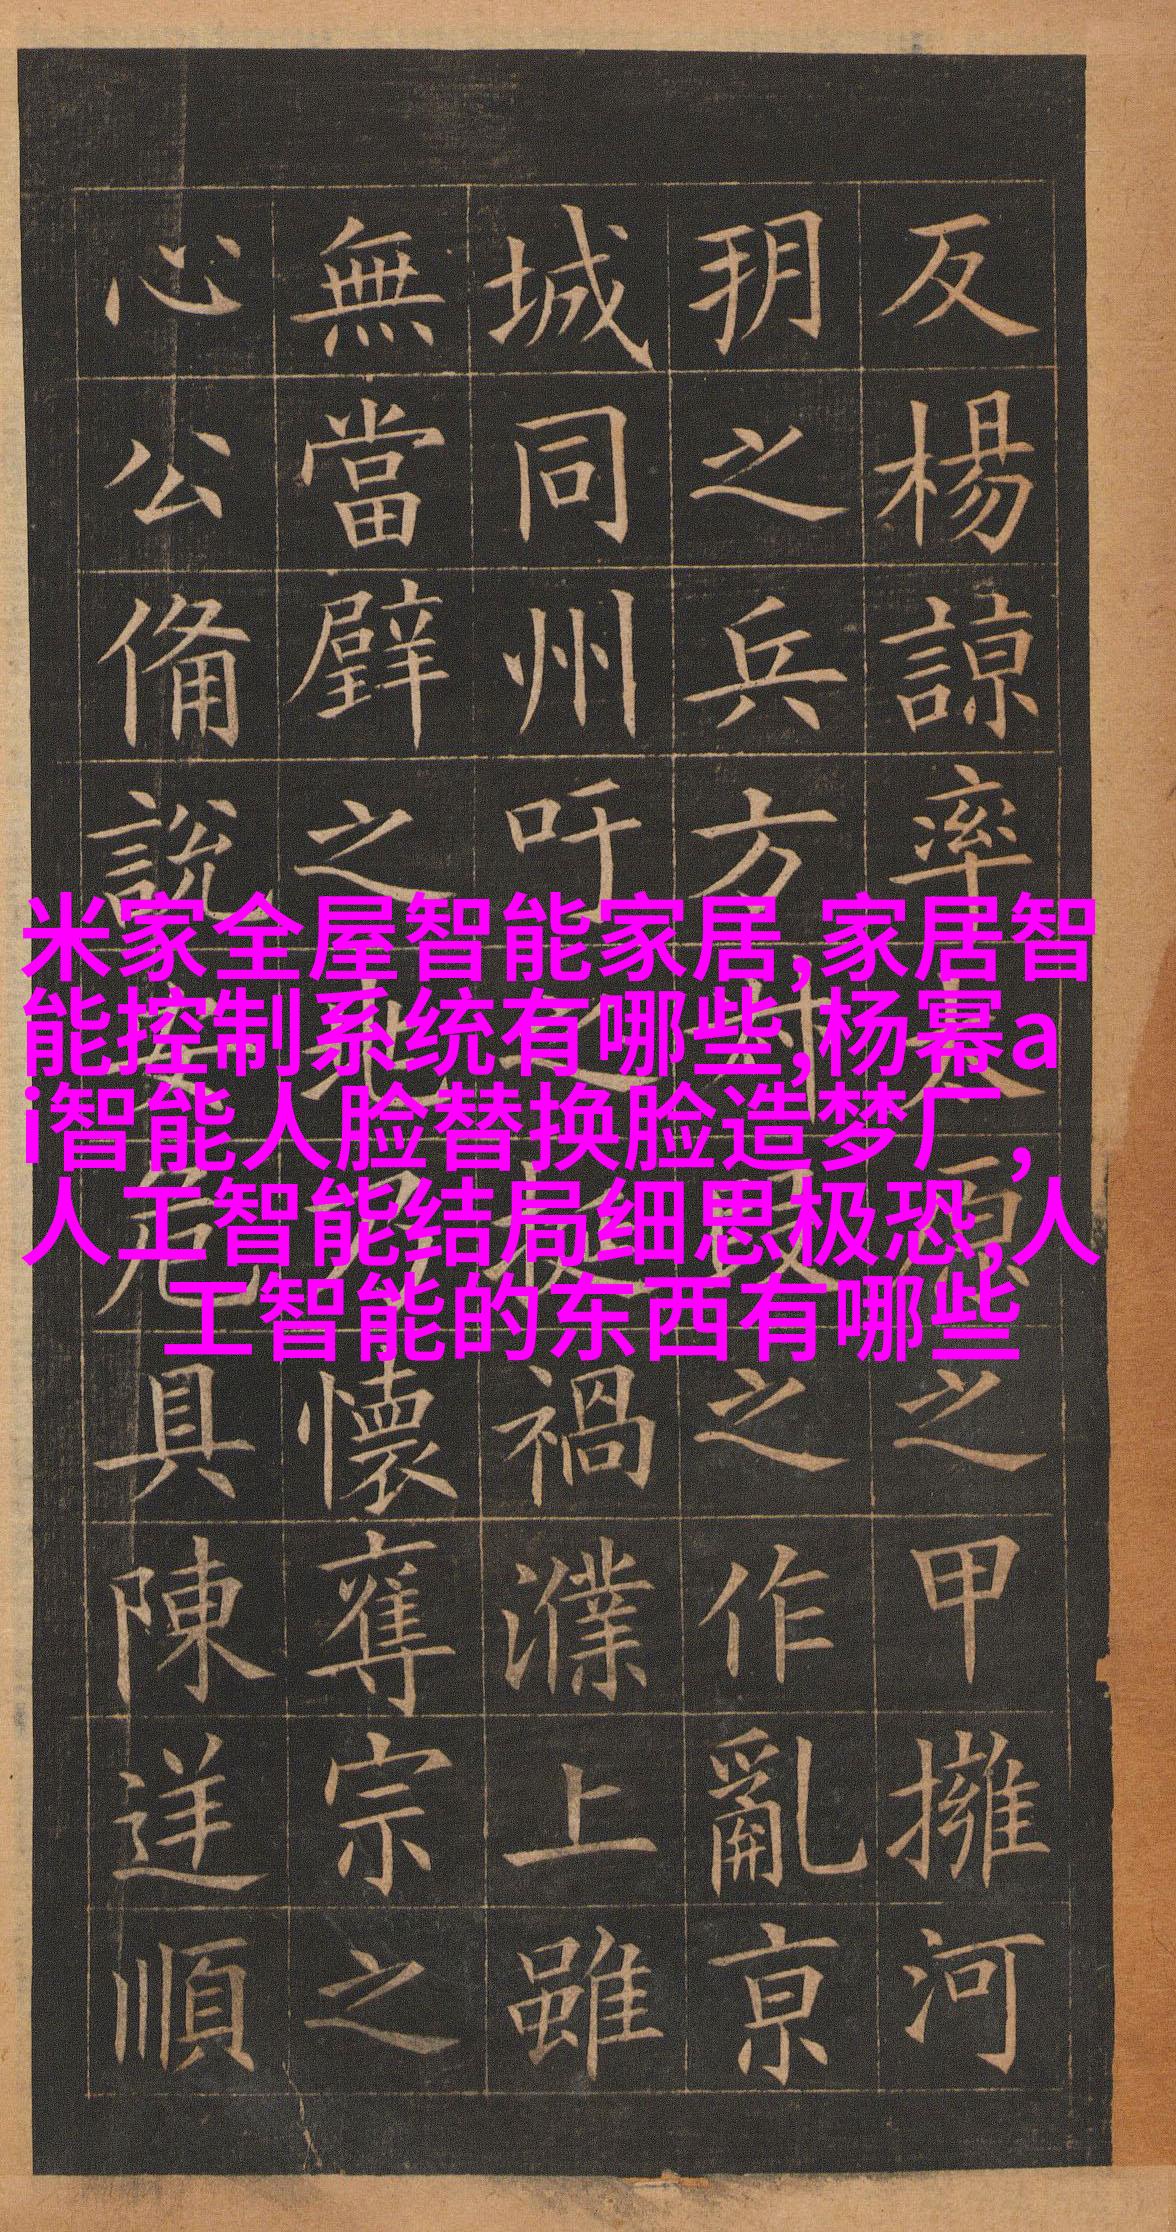 反楊諒率太原之甲擁河
朔之兵方叔段之作亂京
城同州吁之挺禍濮上雖
無當璧之兆乃懷奪宗之
心公備說安危具陳逆順
米家全屋智能家居,家居智
能控制系统有哪些,杨幂a
i智能人脸替换脸造梦厂,
人工智能结局细思极恐,人
工智能的东西有哪些